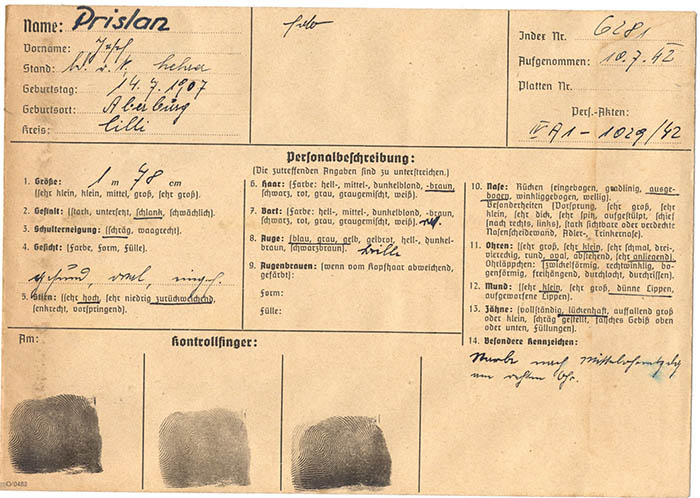 Name: Prislan
Vorname: Josef
Stand: Lehrer
Geburtstag: 14.7.1907
Geburtsort:
Kreis: Cilli
Index Nr. 6281
Aufgenommen: 10.7.42
Platten Nr.
Pers.-Akten:
IV A1 - 1029/42
Personalbeschreibung:
(Die zutreffenden Angaben sind zu unterstreichen.)
1. Größe: 1 m 78 cm
(sehr klein, klein, mittel, groß, sehr groß).
2. Gestalt: (stark, untersetzt, schlank, schwächlich).
3. Schulterneigung: (schräg, waagrecht).
4. Gesicht: (Farbe, Form, Fülle).
gesund, oval, eingef.
5. Stirn: (sehr hoch, sehr niedrig zurückweichend,
senkrecht, vorspringend).
6. Haar: (Farbe: hell-, mittel-, dunkelblond, -braun,
schwarz, rot, grau, graugemischt, weiß).
7. Bart: (Farbe: hell-, mittel-, dunkelblond, -braun,
schwarz, rot, grau, graugemischt, weiß).
8. Auge: (blau, grau, gelb, gelbrot, hell-, dunkel-
braun, schwarzbraun). Brille
9. Augenbrauen: (wenn vom Kopfhaar abweichend,
gefärbt):
Form:
Fülle:
10. Nase: Rücken (eingebogen, gradlinig, ausge-
bogen, winkliggebogen, wellig).
Besonderheiten (Vorsprung, sehr groß, sehr
klein, sehr dick, sehr spitz, aufgestülpt, schief
(nach rechts, links), stark sichtbare oder verdeckte
Nasenscheidewand, Adler-, Trinkernase).
11. Ohren: (sehr groß, sehr klein, sehr schmal, drei-,
viereckig, rund, oval, abstehend, sehr anliegend).
Ohrläppchen: (zwickelförmig, rechtwinklig, bo-
genförmig, freihängend, durchlocht, durchrissen).
12. Mund: (sehr klein, sehr groß, dünne Lippen,
aufgeworfene Lippen).
13. Zähne: (vollständig, lückenhaft, auffallend groß
oder klein, schräg gestellt, falsches Gebiß oben
oder unten, Füllungen).
14. Besondere Kennzeichen:
Narbe nach
am rechten Ohr.
Am:
Kontrollfinger: